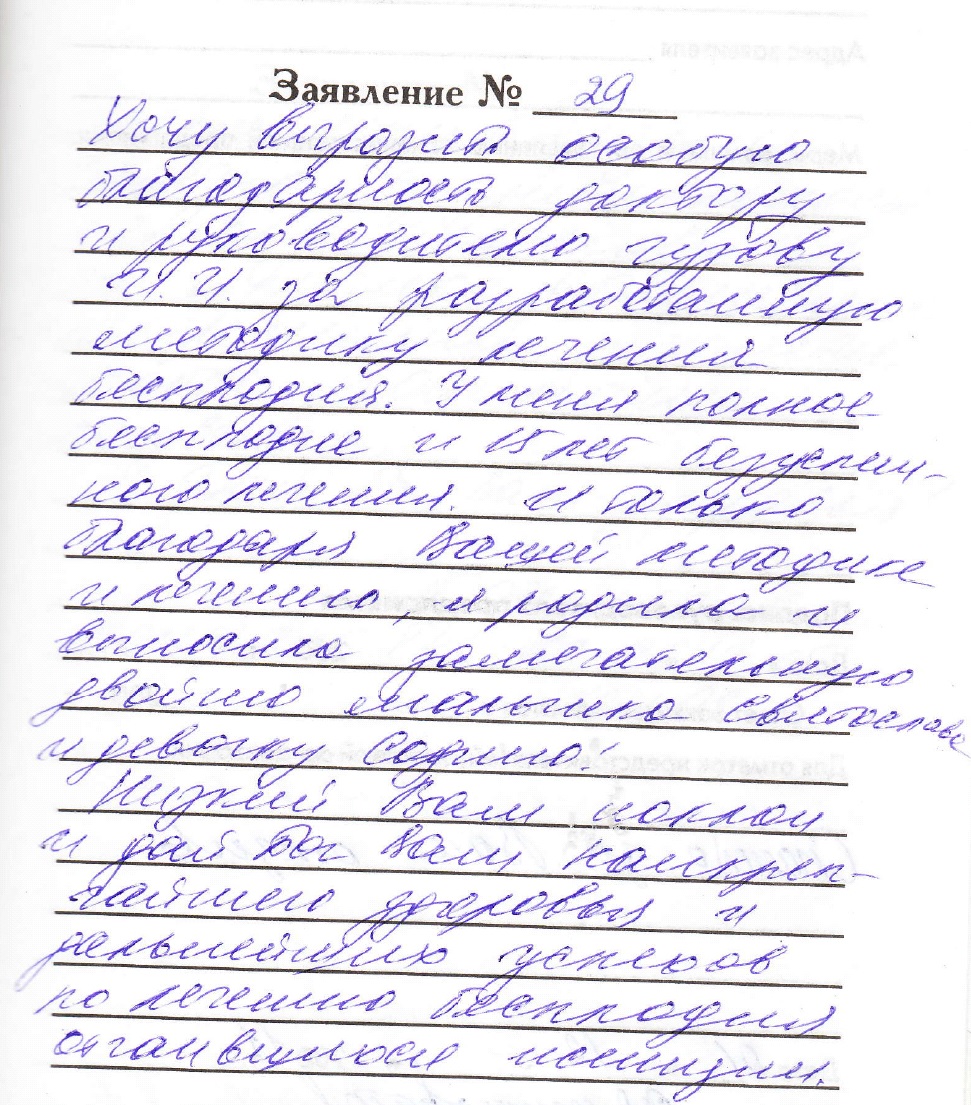 Заявление № 29
Хочу выразить особую
благодарность доктору
и руководителю Гузову
И.И. за разработанную
методику лечения
бесплодия. У меня полное
бесплодие и 15 лет безуспеш-
ного лечения. И только
благодаря Вашей методике
и лечению, я родила и
выносила замечательную
двойню мальчика Святослава
и девочку Софию!
Низкий Вам поклон
и дай Бог Вам наикреп-
чайшего здоровья и
дальнейших успехов
по лечению бесплодия
отчаявшихся женщин.